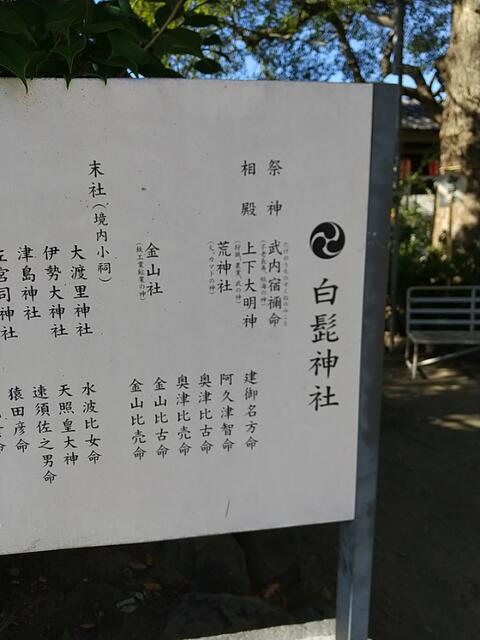 白髭神社
祭神 武内宿禰命
たけのうちのすくねのみこと
相殿 上下大明神 建御名方命
阿久津智命
荒神社 奥津比古命
(火、カマドの神)
奥津比売命
金山社 金山比古命
(鉄工業鉱業の神)
金山比売命
末社(境内小祠)
大渡里神社 水波比女命
伊勢大神社 天照皇大神
津島神社 速須佐之男命
左宮司神社 猿田彦命